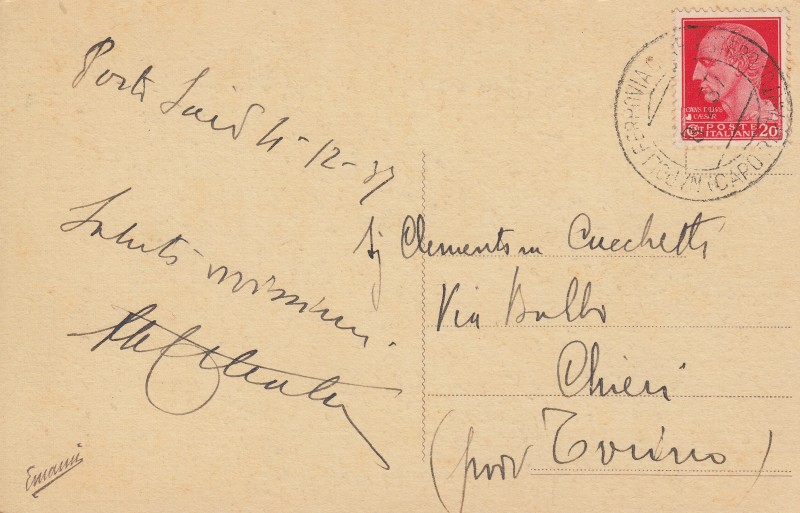 Porto Said 4-12-37
Saluti vivissimi.
Sig Clementina Cucchetti
Via Balbo
Chieri
(prov Torino)
CAIVS IVLIVS
CAESAR
POSTE
ITALIANE 20
FERROVIA
NAPOLI